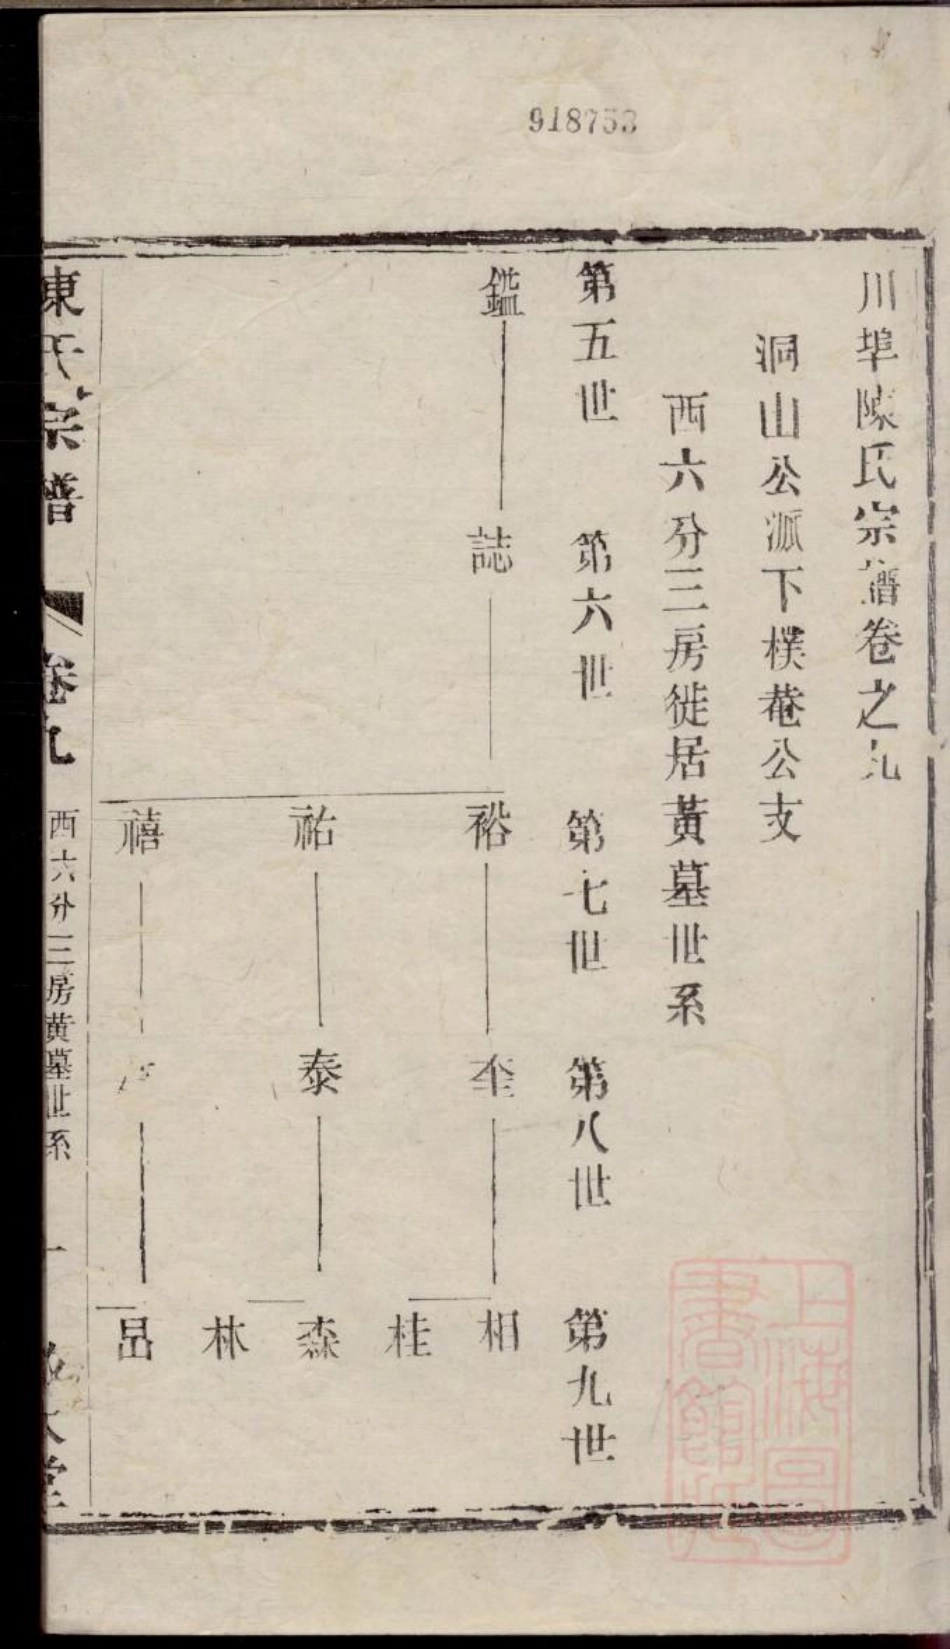 918753
川埠陳氏宗譜卷之九
洞山公派下樸菴公支
西六分三房徙居黃墓世系
第五世 第六世 第七世 第八世 第九世
鑑 誌 裕 奎 相
桂
祐 泰 森
林
禧 呂
陳氏宗譜 卷九 西六分三房黃墓世系 一
上海圖書館藏